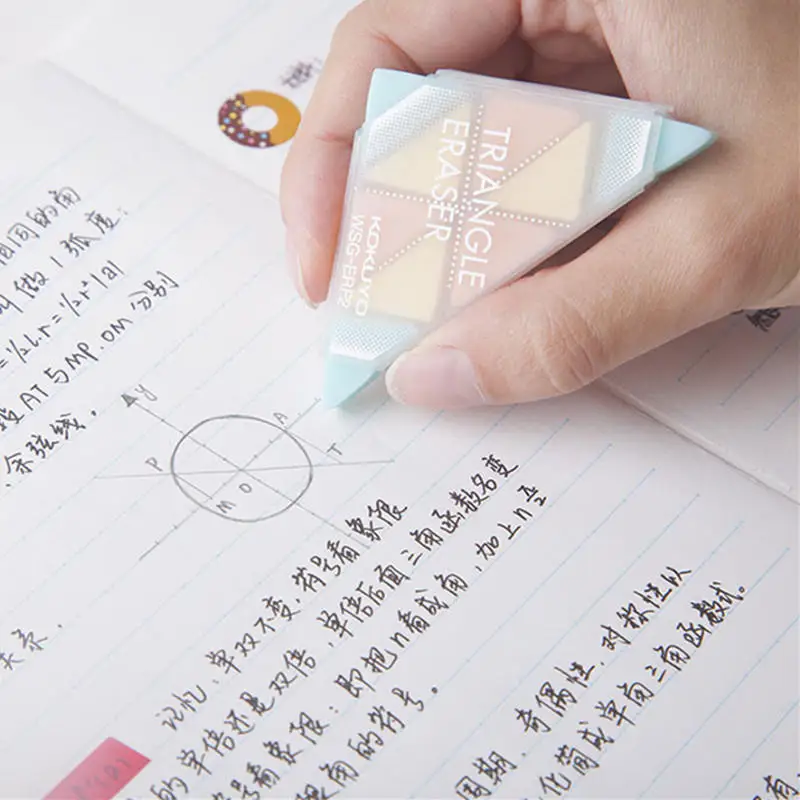 TRIANGLE
ERASER
KOKUYO
WSG-ERP2
相同的角
叫做1弧度;
=½l.r=½r²|a|
AT与MP.OM分别
余弦线.
y
P
A
T
M O
关系.
记忆:单双不变.符号看象限
的单倍还是双倍,单倍后面三角函数名变
号看象限:即把n看成角,加上n
角的符号.
周期.奇偶性.对称性以
化简成单角三角函数式。
有.